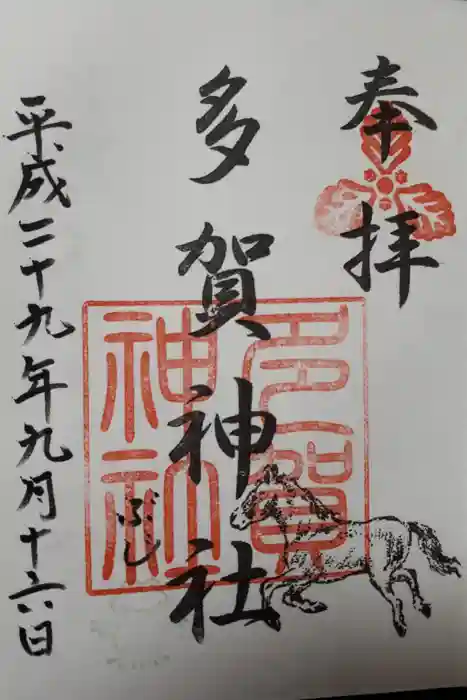 奉拝
多賀神社
多賀
神社
ぶし
平成二十九年九月十六日